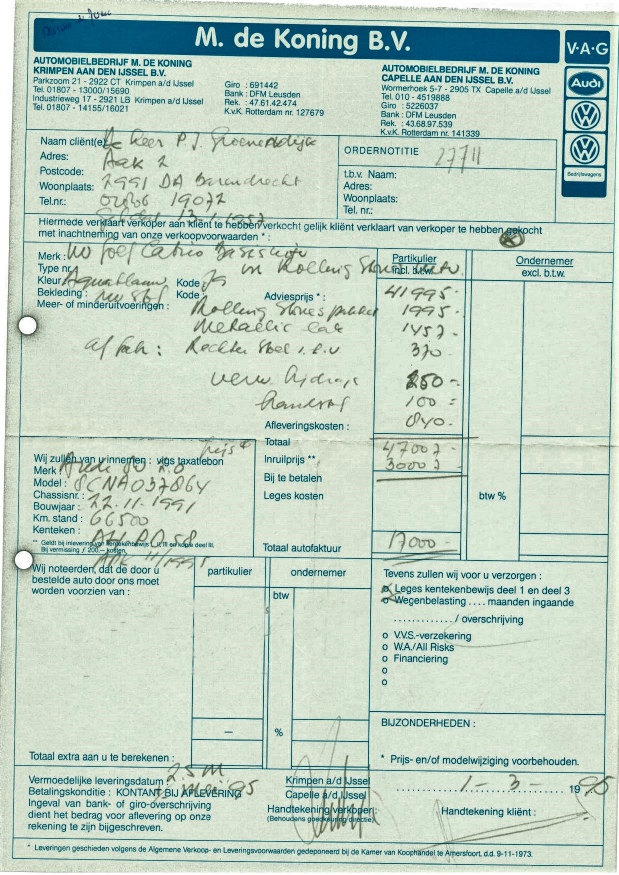 M. de Koning B.V.
V·A·G
Audi
Bedrijfswagens
AUTOMOBIELBEDRIJF M. DE KONING
KRIMPEN AAN DEN IJSSEL B.V.
Parkzoom 21 - 2922 CT Krimpen a/d IJssel
Tel. 01807 - 13000/15690
Industrieweg 17 - 2921 LB Krimpen a/d IJssel
Tel. 01807 - 14155/16021
Giro : 691442
Bank : DFM Leusden
Rek. : 47.61.42.474
K.v.K. Rotterdam nr. 127679
AUTOMOBIELBEDRIJF M. DE KONING
CAPELLE AAN DEN IJSSEL B.V.
Wormerhoek 5-7 - 2905 TX Capelle a/d IJssel
Tel. 010 - 4519888
Giro : 5226037
Bank : DFM Leusden
Rek. : 43.68.97.539
K.v.K. Rotterdam nr. 141339
Naam cliënt(e): De Heer P.J.
Adres: Aak 2
Postcode:
Woonplaats: 2991 DA Barendrecht
Tel.nr.: 01806 19072
ORDERNOTITIE 27711
t.b.v. Naam:
Adres:
Woonplaats:
Tel. nr.:
Hiermede verklaart verkoper aan kliënt te hebben verkocht gelijk kliënt verklaart van verkoper te hebben gekocht
met inachtneming van onze verkoopvoorwaarden * :
Merk : VW Golf Cabrio Basis
Type nr.
Kleur Kode
Bekleding : Kode
in Rolling Stones
Partikulier
incl. b.t.w.
Ondernemer
excl. b.t.w.
Adviesprijs * : 41995 -
Meer- of minderuitvoeringen : Rolling Stones pakket 1995 -
Metallic lak 1457 -
af fab : Rechter stoel i.h.v 370 -
250 -
100 -
Afleveringskosten : 840 -
Totaal 47007 -
Inruilprijs **
Bij te betalen
Leges kosten
btw %
Totaal autofaktuur 17000 -
Wij zullen van u innemen : vlgs taxatiebon
Merk Audi 80 2.0
Model : 8CNA037864
Chassisnr. :
Bouwjaar : 22-11-1991
Km. stand : 66500
Kenteken :
** Geldt bij inlevering van kentekenbewijs I, II, III en kopie deel III.
Bij vermissing / 200,– kosten.
APK 11/1995
Wij noteerden, dat de door u
bestelde auto door ons moet
worden voorzien van :
partikulier
ondernemer
btw
– %
Totaal extra aan u te berekenen :
Tevens zullen wij voor u verzorgen :
o Leges kentekenbewijs deel 1 en deel 3
o Wegenbelasting .... maanden ingaande
............. / overschrijving
o V.V.S.-verzekering
o W.A./All Risks
o Financiering
o
o
BIJZONDERHEDEN :
* Prijs- en/of modelwijziging voorbehouden.
Vermoedelijke leveringsdatum :
Betalingskonditie : KONTANT BIJ AFLEVERING
Ingeval van bank- of giro-overschrijving
dient het bedrag voor aflevering op onze
rekening te zijn bijgeschreven.
Krimpen a/d IJssel
Capelle a/d IJssel
Handtekening verkoper:
(Behoudens goedkeuring directie)
1 - 3 - 1995
Handtekening kliënt :
* Leveringen geschieden volgens de Algemene Verkoop- en Leveringsvoorwaarden gedeponeerd bij de Kamer van Koophandel te Amersfoort, d.d. 9-11-1973.